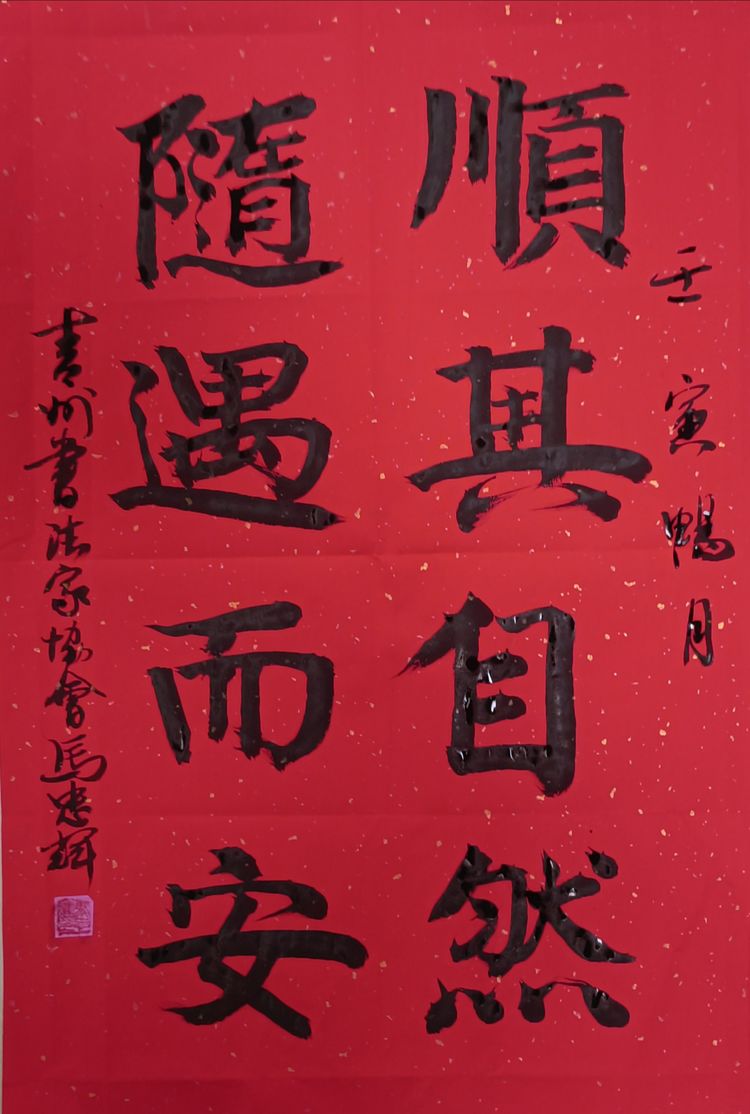 壬寅鴨月
順其自然
隨遇而安
青州書法家協會馬忠輝